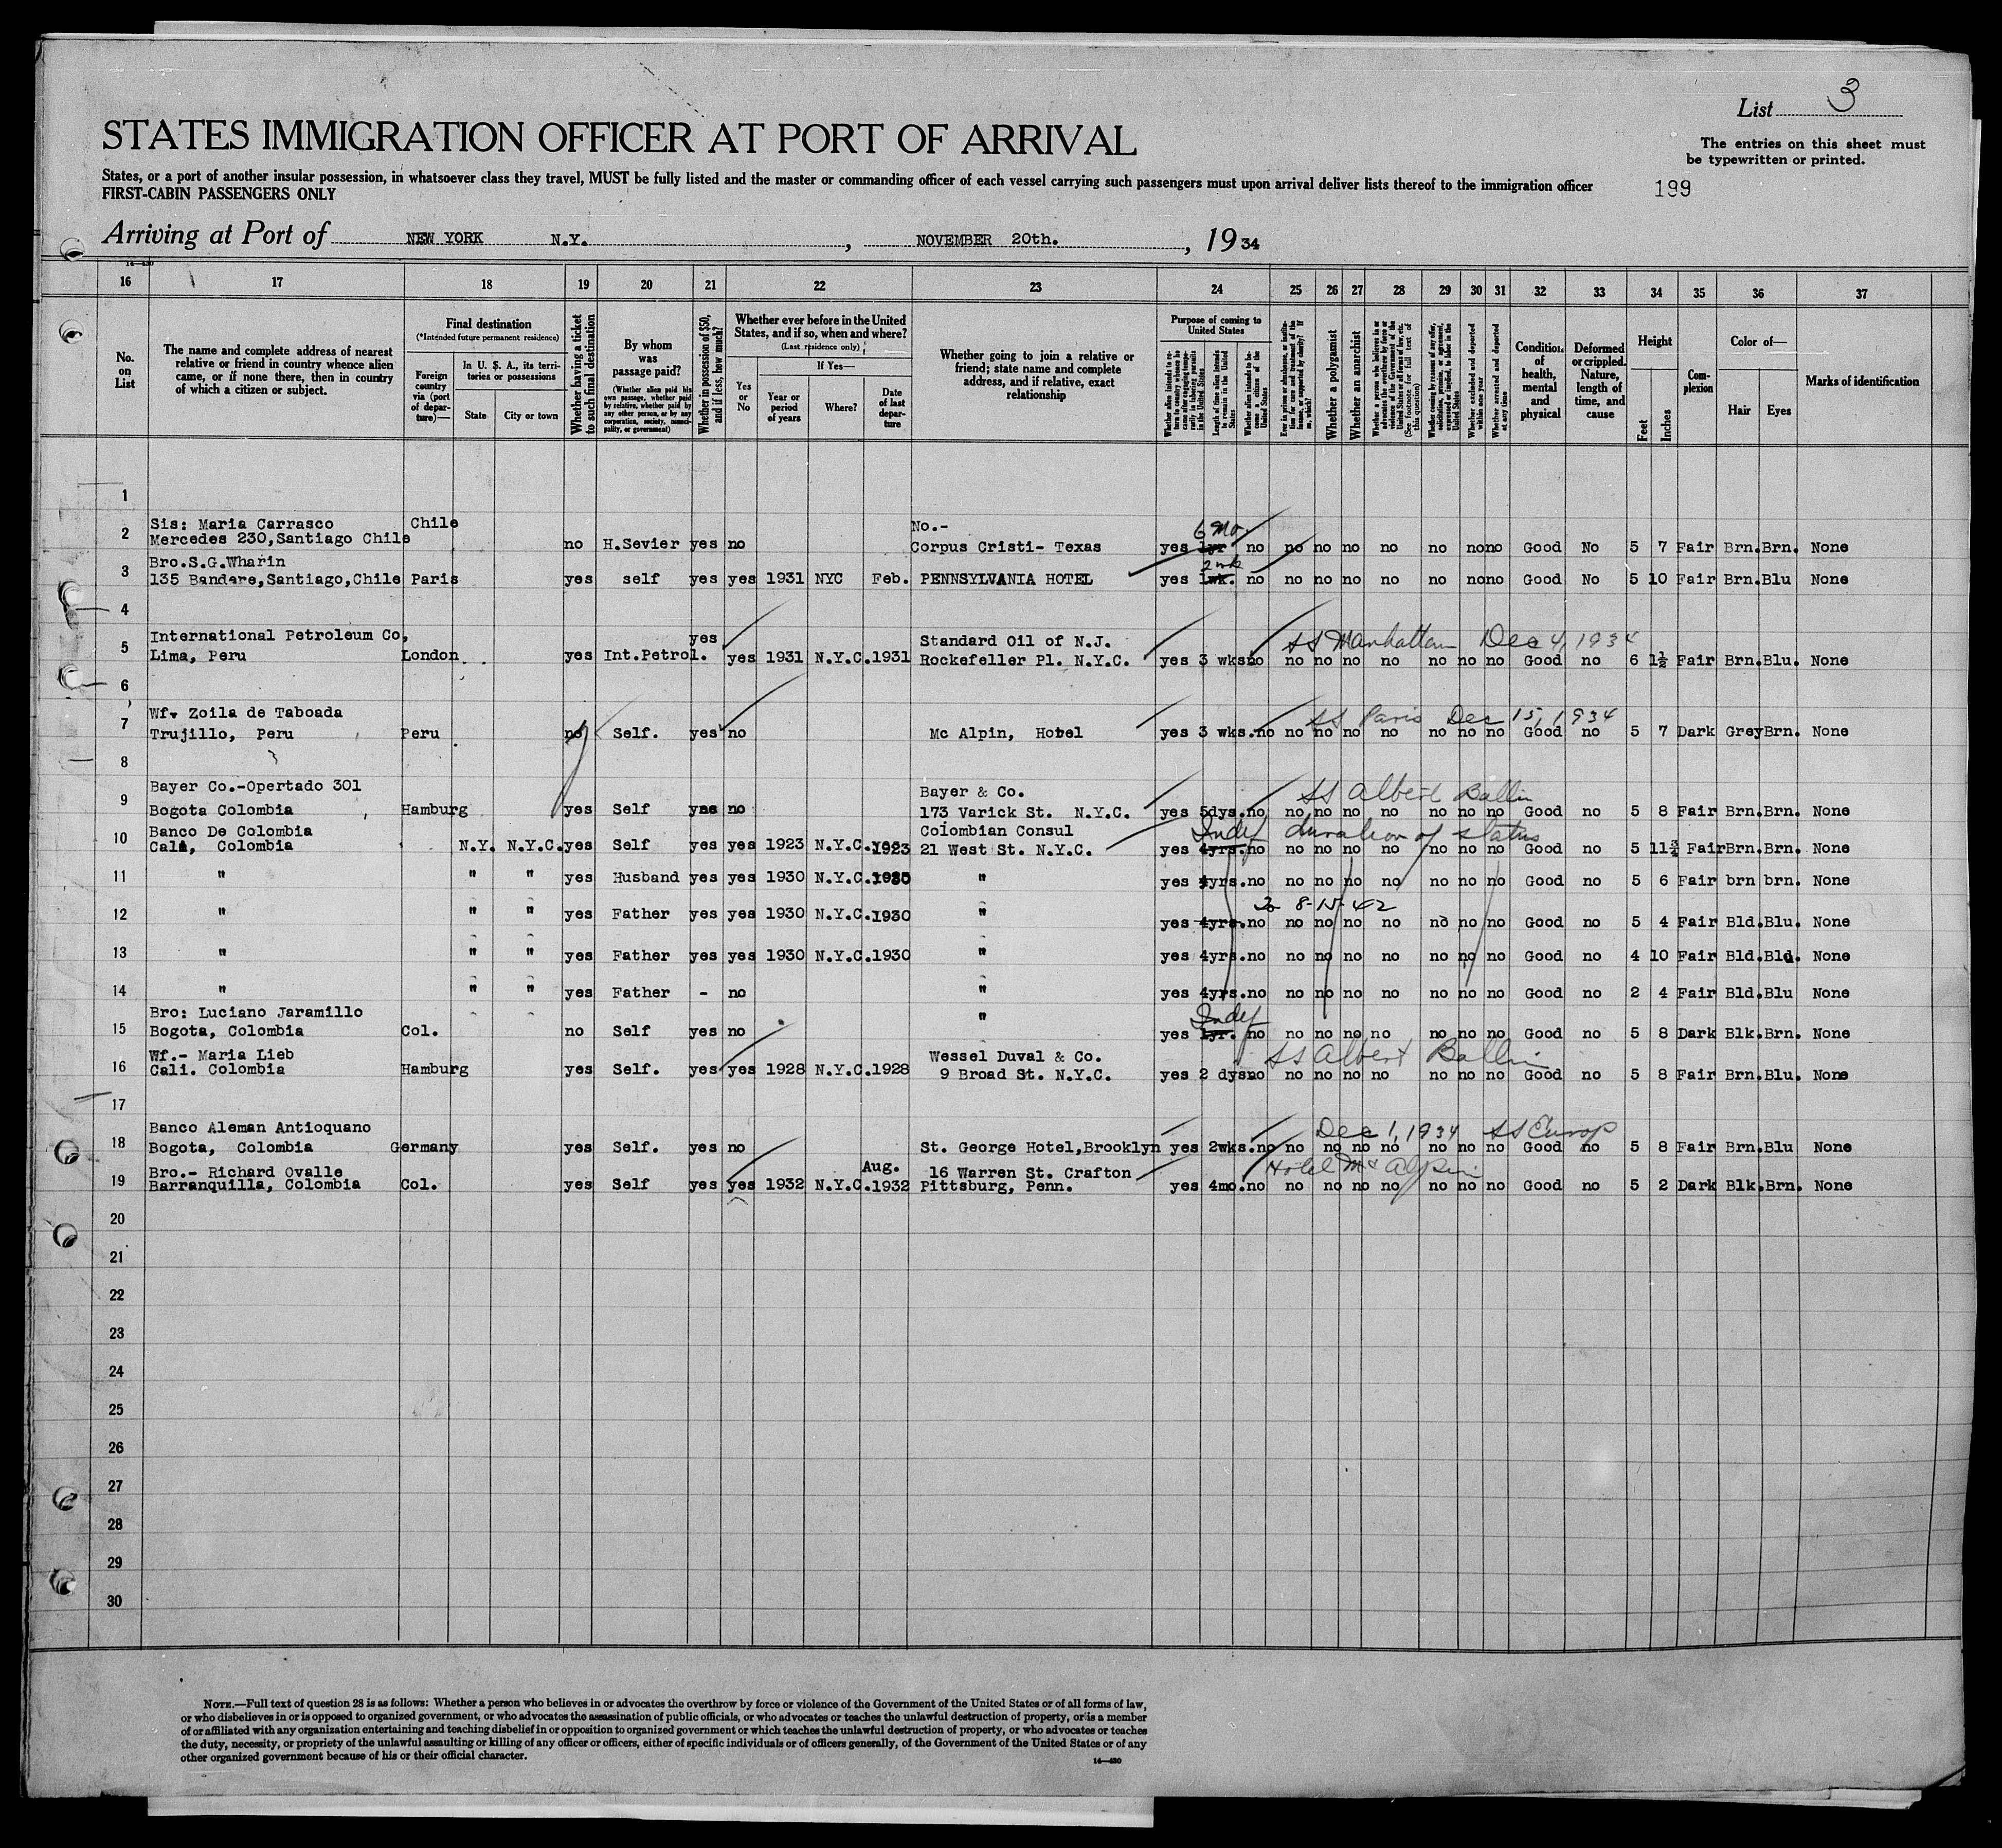 List 3
STATES IMMIGRATION OFFICER AT PORT OF ARRIVAL
The entries on this sheet must
be typewritten or printed.
States, or a port of another insular possession, in whatsoever class they travel, MUST be fully listed and the master or commanding officer of each vessel carrying such passengers must upon arrival deliver lists thereof to the immigration officer
FIRST-CABIN PASSENGERS ONLY
199
Arriving at Port of NEW YORK N.Y. , NOVEMBER 20th. , 1934
16 17 18 19 20 21 22 23 24 25 26 27 28 29 30 31 32 33 34 35 36 37
No. on List
The name and complete address of nearest relative or friend in country whence alien came, or if none there, then in country of which a citizen or subject.
Final destination
(*Intended future permanent residence)
Foreign country via (port of departure)—
In U. S. A., its territories or possessions
State
City or town
Whether having a ticket to such final destination
By whom was passage paid?
(Whether alien paid his own passage, whether paid by relative, whether paid by any other person, or by any corporation, society, municipality, or government)
Whether in possession of $50, and if less, how much?
Whether ever before in the United States, and if so, when and where?
(Last residence only)
Yes or No
If Yes—
Year or period of years
Where?
Date of last departure
Whether going to join a relative or friend; state name and complete address, and if relative, exact relationship
Purpose of coming to United States
Length of time alien intends to remain in the United States
Whether alien intends to become a citizen of the United States
Whether a polygamist
Whether an anarchist
(See footnote for full text of this question)
Whether excluded and deported within one year
Whether arrested and deported at any time
Condition of health, mental and physical
Deformed or crippled. Nature, length of time, and cause
Height
Feet
Inches
Complexion
Color of—
Hair
Eyes
Marks of identification
1
Sis: Maria Carrasco Chile No.- 6 Mo.
2 Mercedes 230,Santiago Chile no H.Sevier yes no Corpus Cristi- Texas yes 1yr no no no no no no no no Good No 5 7 Fair Brn. Brn. None
Bro.S.G.Wharin 2 wk
3 135 Bandera,Santiago,Chile Paris yes self yes yes 1931 NYC Feb. PENNSYLVANIA HOTEL yes 1wk. no no no no no no no no Good No 5 10 Fair Brn. Blu None
4
International Petroleum Co, yes Standard Oil of N.J. SS Manhattan Dec 4, 1934
5 Lima, Peru London yes Int.Petrol. yes 1931 N.Y.C. 1931 Rockefeller Pl. N.Y.C. yes 3 wks no no no no no no no no Good no 6 1½ Fair Brn. Blu. None
6
Wf. Zoila de Taboada SS Paris Dec 15, 1934
7 Trujillo, Peru Peru no Self. yes no Mc Alpin, Hotel yes 3 wks. no no no no no no no no Good no 5 7 Dark Grey Brn. None
8
Bayer Co.-Opertado 301 Bayer & Co. SS Albert Ballin
9 Bogota Colombia Hamburg yes Self yes no 173 Varick St. N.Y.C. yes 5dys. no no no no no no no no Good no 5 8 Fair Brn. Brn. None
Banco De Colombia Coiombian Consul Indef duration of status
10 Cali, Colombia N.Y. N.Y.C. yes Self yes yes 1923 N.Y.C. 1923 21 West St. N.Y.C. yes 4yrs. no no no no no no no no Good no 5 11½ Fair Brn. Brn. None
11 " " " yes Husband yes yes 1930 N.Y.C. 1930 " yes 4yrs. no no no no no no no no Good no 5 6 Fair brn brn. None
8-15-42
12 " " " yes Father yes yes 1930 N.Y.C. 1930 " yes 4yrs. no no no no no no no no Good no 5 4 Fair Bld. Blu. None
13 " " " yes Father yes yes 1930 N.Y.C. 1930 " yes 4yrs. no no no no no no no no Good no 4 10 Fair Bld. Bld. None
14 " " " yes Father - no " yes 4yrs. no no no no no no no no Good no 2 4 Fair Bld. Blu None
Bro: Luciano Jaramillo " Indef
15 Bogota, Colombia Col. no Self yes no yes 1yr. no no no no no no no no Good no 5 8 Dark Blk. Brn. None
Wf.- Maria Lieb Wessel Duval & Co. SS Albert Ballin
16 Cali. Colombia Hamburg yes Self. yes yes 1928 N.Y.C. 1928 9 Broad St. N.Y.C. yes 2 dys no no no no no no no no Good no 5 8 Fair Brn. Blu. None
17
Banco Aleman Antioquano Dec 1, 1934 SS Europ
18 Bogota, Colombia Germany yes Self. yes no St. George Hotel,Brooklyn yes 2wks. no no no no no no no no Good no 5 8 Fair Brn. Blu None
Bro.- Richard Ovalle Aug. 16 Warren St. Crafton Hotel Mc Alpin
19 Barranquilla, Colombia Col. yes Self yes yes 1932 N.Y.C. 1932 Pittsburg, Penn. yes 4mo. no no no no no no no no Good no 5 2 Dark Blk. Brn. None
20
21
22
23
24
25
26
27
28
29
30
NOTE.—Full text of question 28 is as follows: Whether a person who believes in or advocates the overthrow by force or violence of the Government of the United States or of all forms of law,
or who disbelieves in or is opposed to organized government, or who advocates the assassination of public officials, or who advocates or teaches the unlawful destruction of property, or is a member
of or affiliated with any organization entertaining and teaching disbelief in or opposition to organized government or which teaches the unlawful destruction of property, or who advocates or teaches
the duty, necessity, or propriety of the unlawful assaulting or killing of any officer or officers, either of specific individuals or of officers generally, of the Government of the United States or of any
other organized government because of his or their official character.
14—430